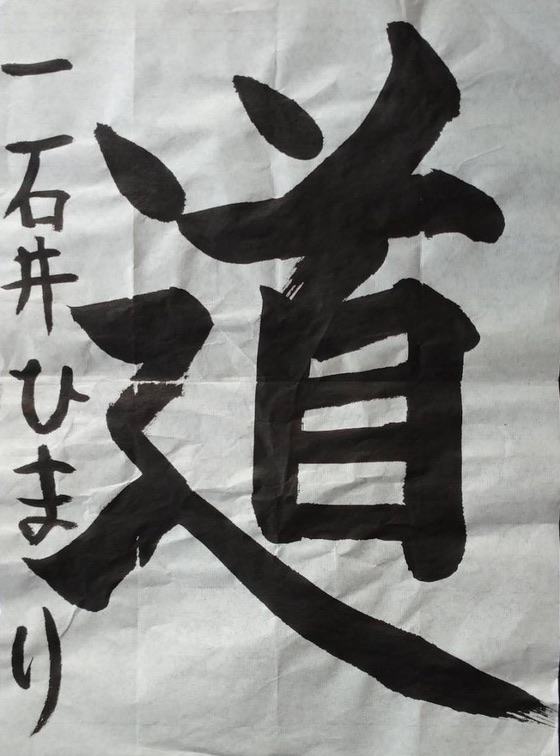 道
一 石井ひまり